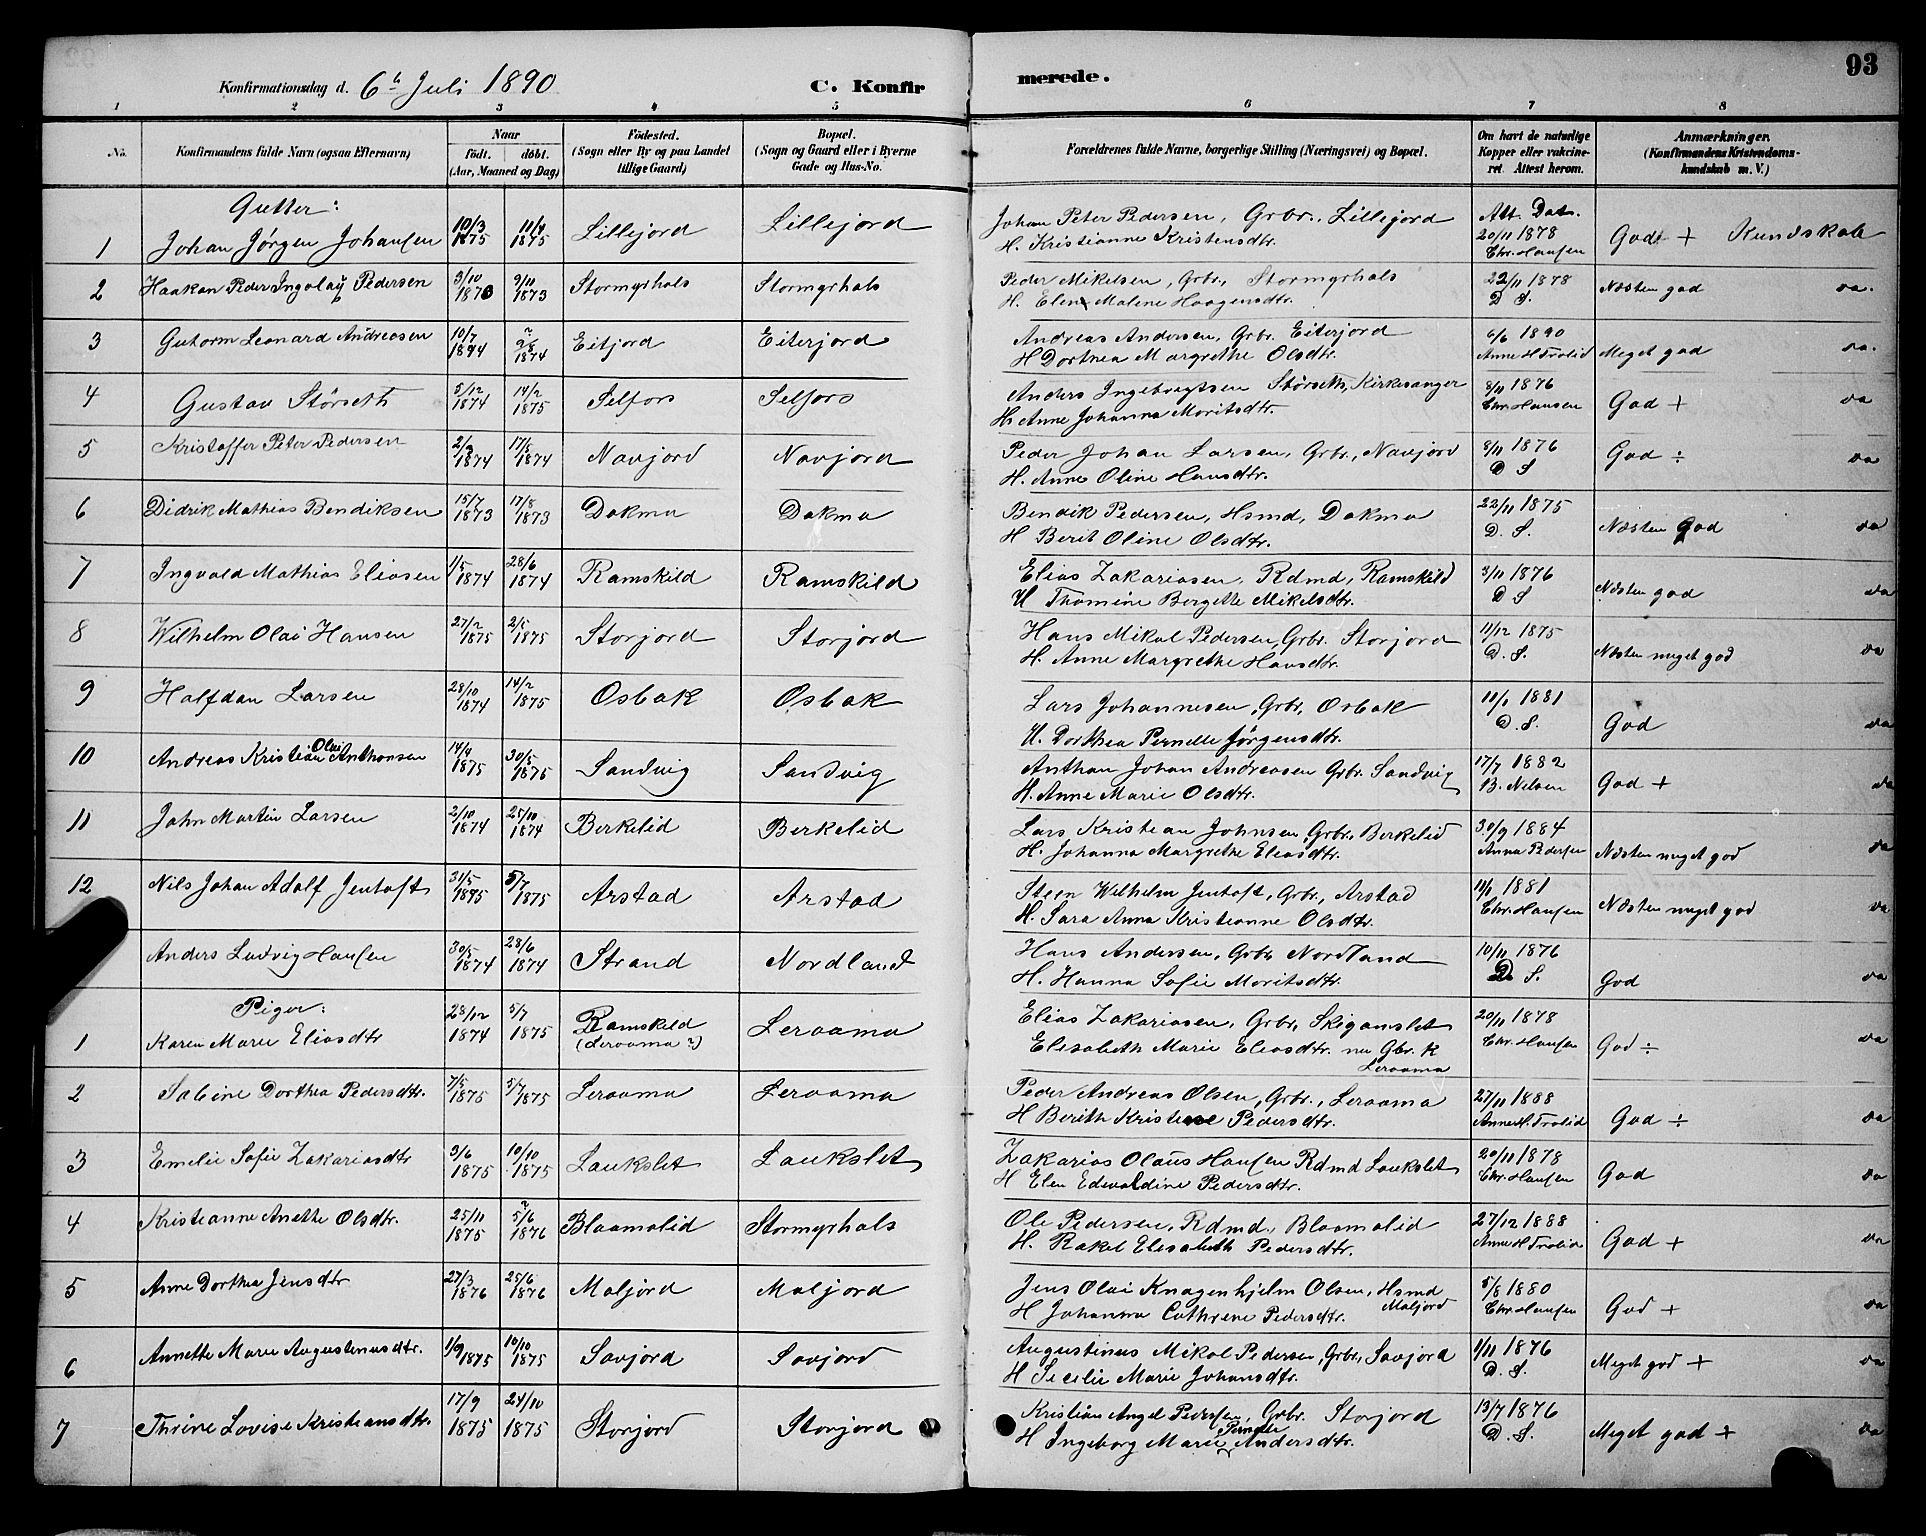 93
Konfirmationsdag d. 6te Juli 1890 C. Konfirmerede.
1 2 3 4 5 6 7 8
No. Konfirmandens fulde Navn (ogsaa Efternavn) Naar født. døbt. (Aar, Maaned og Dag) Fødested. (Sogn eller By og paa Landet tillige Gaard) Bopæl. (Sogn og Gaard eller i Byerne Gade og Hus-No. Forældrenes fulde Navne, borgerlige Stilling (Næringsvei) og Bopæl. Om havt de naturlige Kopper eller vakcineret. Attest herom. Anmærkninger. (Konfirmandens Kristendomskundskab m. V.)
Gutter:
1 Johan Jørgen Johansen 10/3 1875 11/4 1875 Lillejord Lillejord Johan Peter Pedersen, Grbr., Lillejord Att. Dat. 20/11 1878 God + Kundskab
H. Kristianne Kristensdtr. Chr. Hansen
2 Haakon Peder Ingolay Pedersen 3/10 1873 9/11 1873 Stormyrhals Stormyrhals Peder Mikelsen, Grbr, Stormyrhals 22/11 1878 Næsten god do.
H. Elen Malene Haagensdtr. D S.
3 Guttorm Leonard Andreasen 10/7 1874 2/8 1874 Eitjord Eiterjord Andreas Andersen, Grbr. Eiterjord 6/6 1890 Meget god do.
H Dorthea Margrethe Olsdtr. Anne H Trolid
4 Gustav Störseth 5/12 1874 14/2 1875 Selfors Selfors Anders Ingebrigtsen Störseth, Kirkesanger 8/11 1876 God + do
H. Anne Johanna Moritsdtr. Chr. Hansen
5 Kristoffer Peter Pedersen 2/3 1874 17/5 1874 Navjord Navjord Peder Johan Larsen, Grbr., Navjord 8/11 1876 God ÷ do
H. Anne Oline Hansdtr. D S
6 Didrik Mathias Bendiksen 15/7 1873 17/8 1873 Dokma Dokma Bendik Pedersen, Hsmd, Dokma 22/11 1875 Næsten God do
H Berit Oline Olsdtr. D. S.
7 Ingvald Mathias Eliasen 1/5 1874 28/6 1874 Ramskild Ramskild Elias Zakariasen, Rdmd, Ramskild 3/11 1876 Næsten god do
H Thomine Bergette Mikelsdtr. D S
8 Wilhelm Olai Hansen 27/2 1875 2/5 1875 Storjord Storjord Hans Mikal Pedersen, Grbr. Storjord 11/12 1875 Næsten meget god do
H. Anne Margrethe Hansdtr. D. S.
9 Halfdan Larsen 28/10 1874 14/2 1875 Osbak Osbak Lars Johannesen, Grbr, Osbak 11/1 1881 God do
H. Dorthea Pernelle Jørgensdtr. D S.
10 Andreas Kristian Olai Anthonsen 14/4 1875 30/5 1875 Sandvig Sandvig Anthon Johan Andreasen Grbr. Sandvig 17/7 1882 God + do
H. Anne Marie Olsdtr. B. Nelsen
11 John Martin Larsen 2/10 1874 25/10 1874 Berkelid Berkelid Lars Kristian Johnsen, Grbr. Berkelid 30/9 1884 Næsten meget god do
H. Johanna Margrethe Eliasdtr. Anna Pedersen
12 Nils Johan Adolf Jentoft 31/5 1875 5/7 1875 Arstad Arstad Steen Wilhelm Jentoft, Grbr, Arstad 11/1 1881 Næsten meget god do
H. Sara Anna Kristianne Olsdtr. Chr. Hansen
Anders Ludvig Hansen 30/5 1874 28/6 1874 Strand Nordland Hans Andersen, Grbr, Nordland 10/11 1876 God do
H. Hanna Sofie Moritsdtr. D. S.
Piger:
1 Karen Marie Eliasdtr 28/12 1874 5/7 1875 Ramskild (Leraama?) Leraama Elias Zakariasen, Grbr, Skigamslet 20/11 1878 God ÷ do
Elisabeth Marie Eliasdtr. nu Gbr. K Leraama Chr. Hansen
2 Sabine Dorthea Pedersdtr. 7/5 1875 5/7 1875 Leraama Leraama Peder Andreas Olsen, Grbr., Leraama 27/11 1888 God ÷ do
H Berith Kristine Pedersdtr. Anne H. Trolid
3 Emelie Sofie Zakariasdtr 3/6 1875 10/10 1875 Laukslet Laukslet Zakarias Olaus Hansen Rdmd Laukslet 20/11 1878 God do
H Elen Edevaldine Pedersdtr. Chr. Hansen
4 Kristianne Anette Olsdtr. 25/11 1875 5/6 1876 Blaamolid Stormyrhals Ole Pedersen, Rdmd, Blaamolid 27/12 1888 God + do
H. Rakel Elisabeth Pedersdtr. Anne H Trolid
5 Anne Dorthea Jensdtr 27/3 1876 25/6 1876 Moljord Moljord Jens Olai Knagenhjelm Olsen, Hsmd Moljord 5/8 1880 God + do
H Johanna Cathrine Pedersdtr. Chr. Hansen
6 Annette Marie Augustinusdtr. 1/9 1875 10/10 1875 Savjord Savjord Augustinus Mikal Pedersen, Grbr., Savjord 1/11 1876 Meget god + do
H Secilie Marie Johansdtr. D. S.
7 Thrine Lovise Kristiansdtr. 17/9 1875 24/10 1875 Storjord Storjord Kristian Angel Pedersen, Grbr. Storjord 13/7 1876 Meget god + do
H Ingeborg Marie Pernelle Andersdtr. D. S.